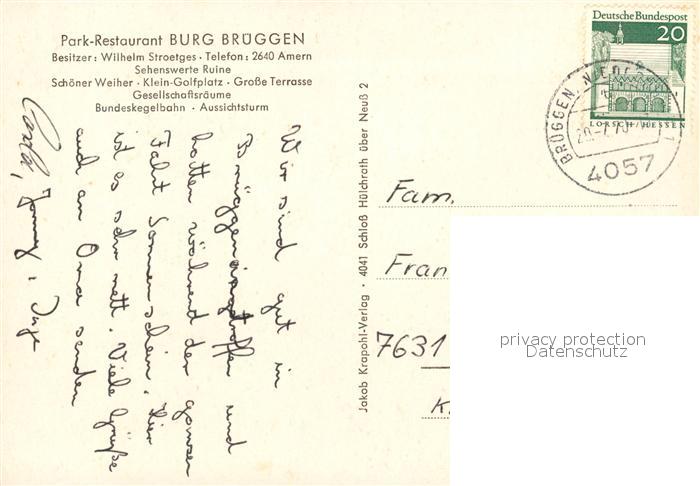 Park-Restaurant BURG BRÜGGEN
Besitzer: Wilhelm Stroetges · Telefon: 2640 Amern
Sehenswerte Ruine
Schöner Weiher · Klein-Golfplatz · Große Terrasse
Gesellschaftsräume
Bundeskegelbahn · Aussichtsturm
Wir sind gut in
Brüggen eingetroffen und
hatten während der ganzen
Fahrt Sonnenschein. Hier
ist es sehr nett. Viele Grüße
auch an Oma senden
Jakob Krapohl-Verlag · 4041 Schloß Hülchrath über Neuß 2
Deutsche Bundespost
20
LORSCH/HESSEN
BRÜGGEN
4057
Fam.
Fran
7631
K
privacy protection
Datenschutz